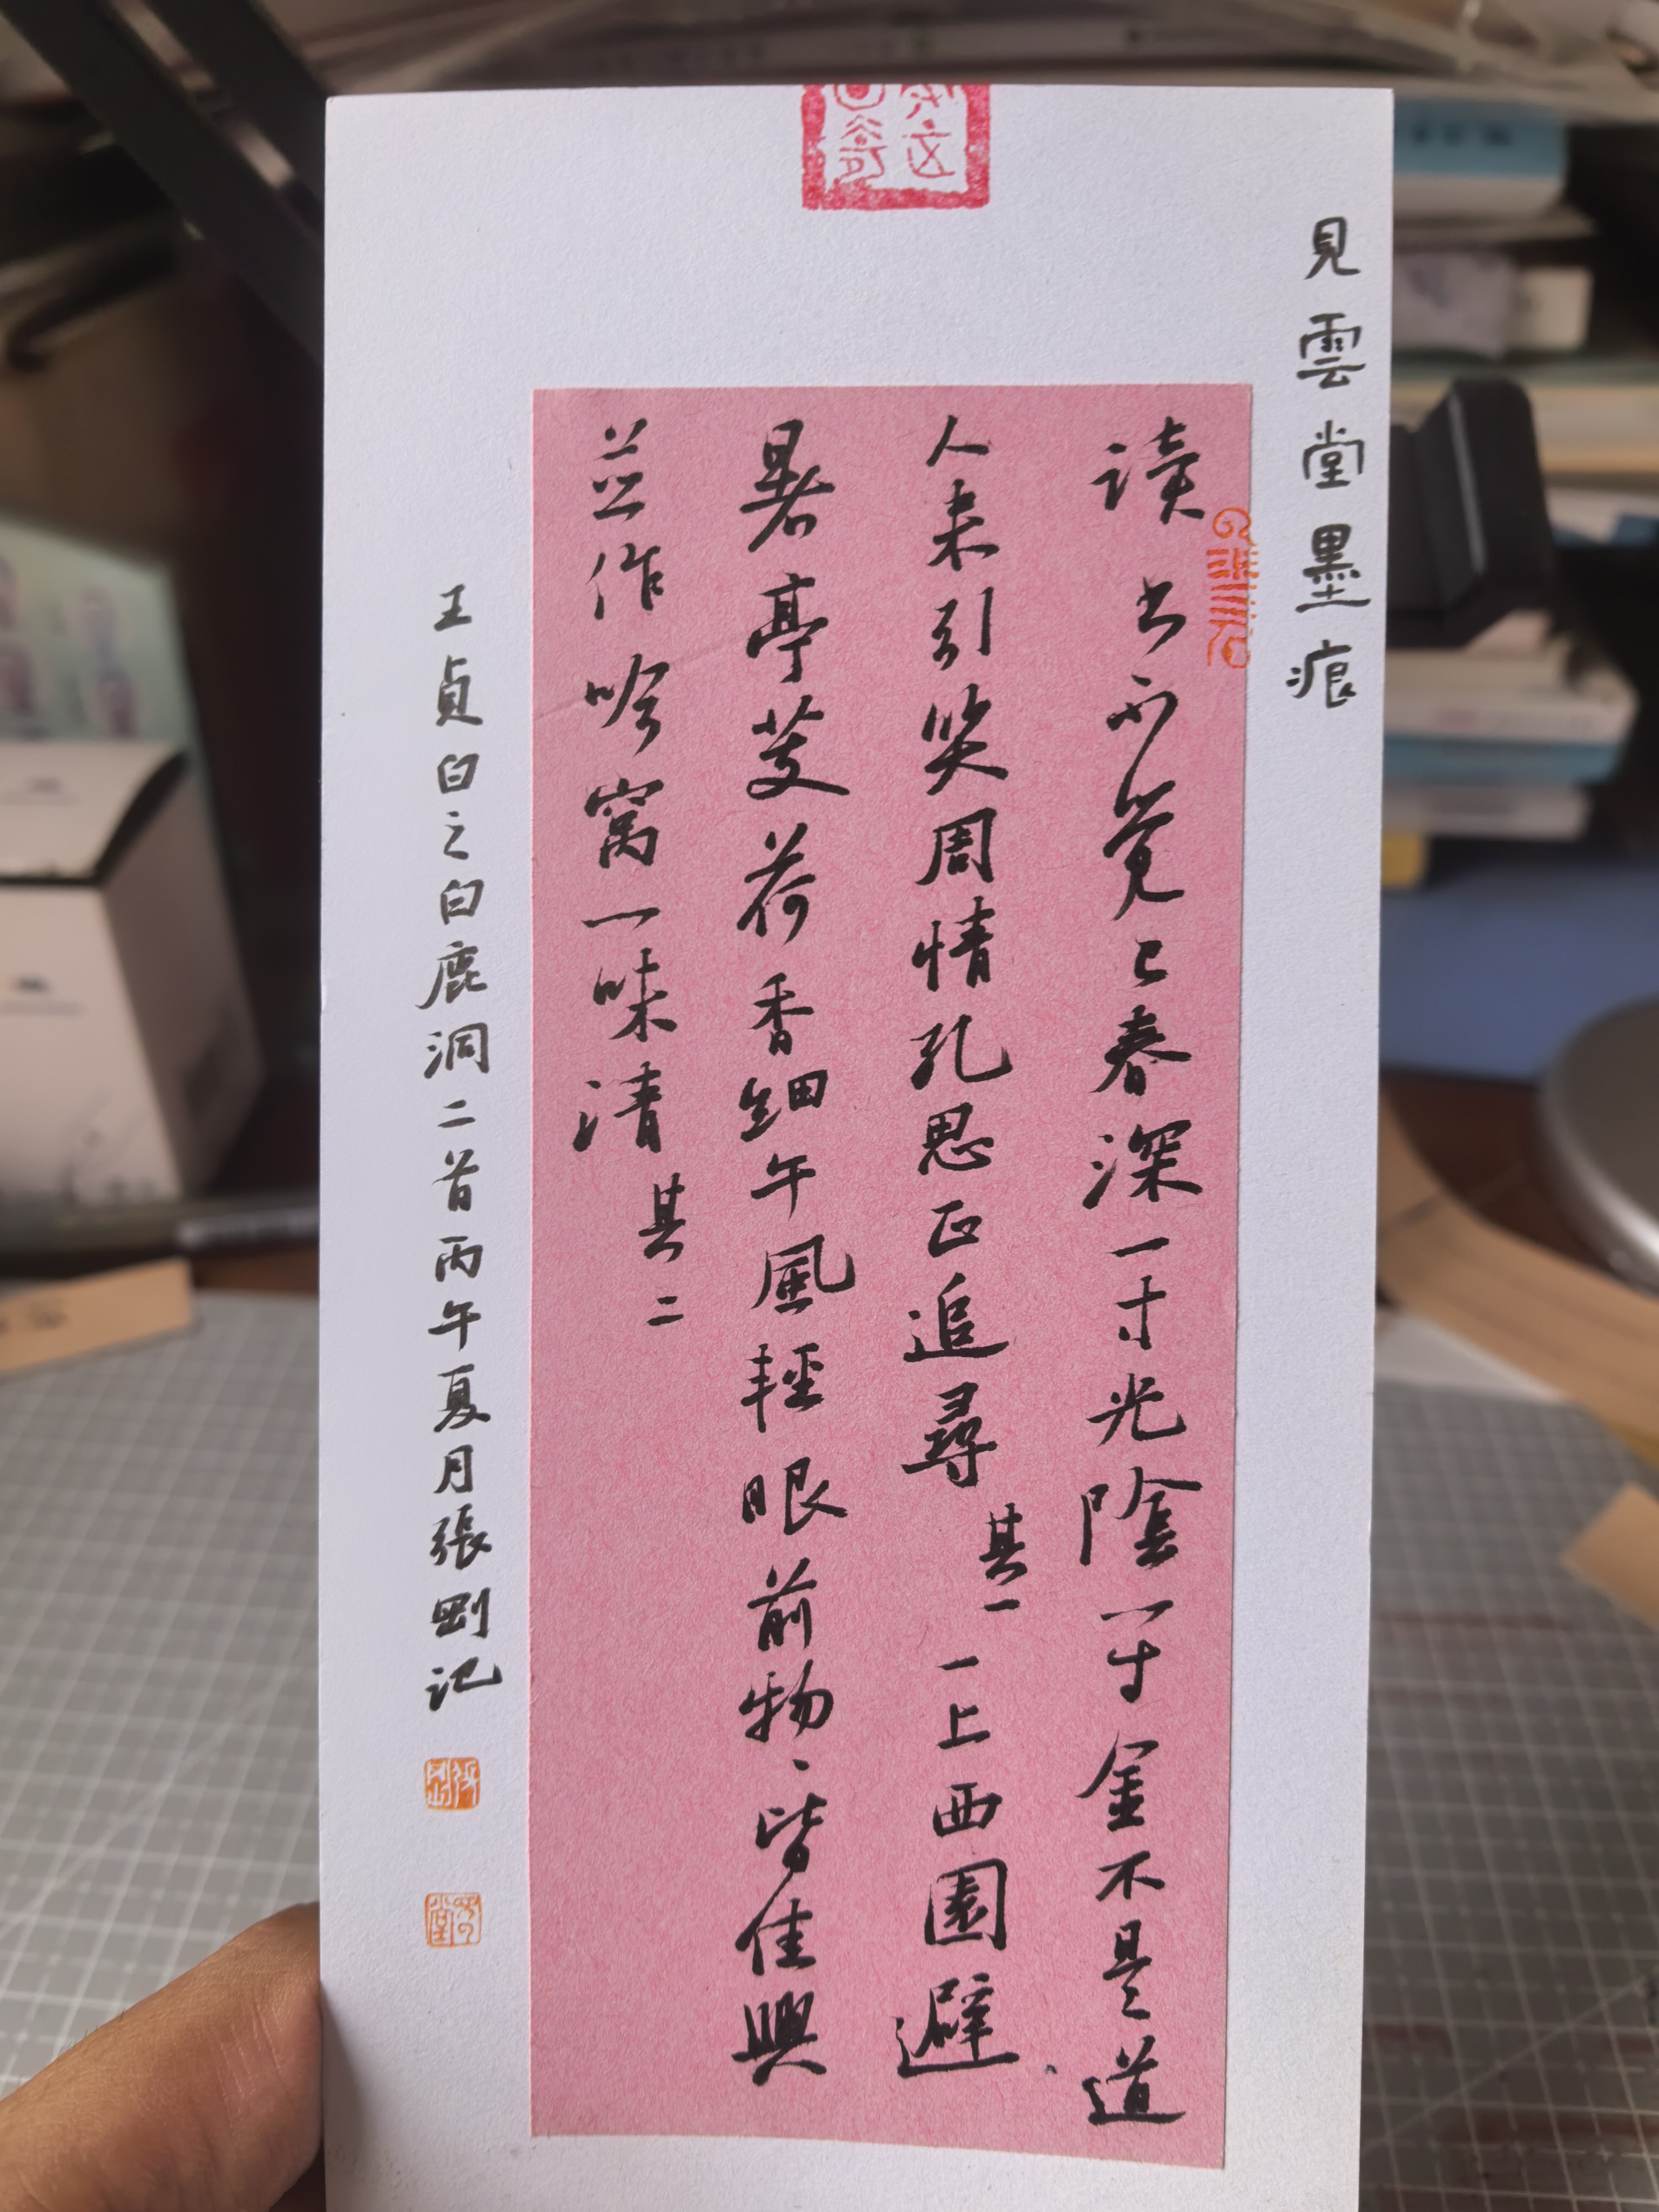 見雲堂墨痕
读书不觉已春深一寸光陰一寸金不是道
人来引笑周情孔思正追尋 其一 一上西園避
暑亭芰荷香細午風輕眼前物、皆佳興
並作吟窩一味清 其二
王貞白之白鹿洞二首丙午夏月張剛記